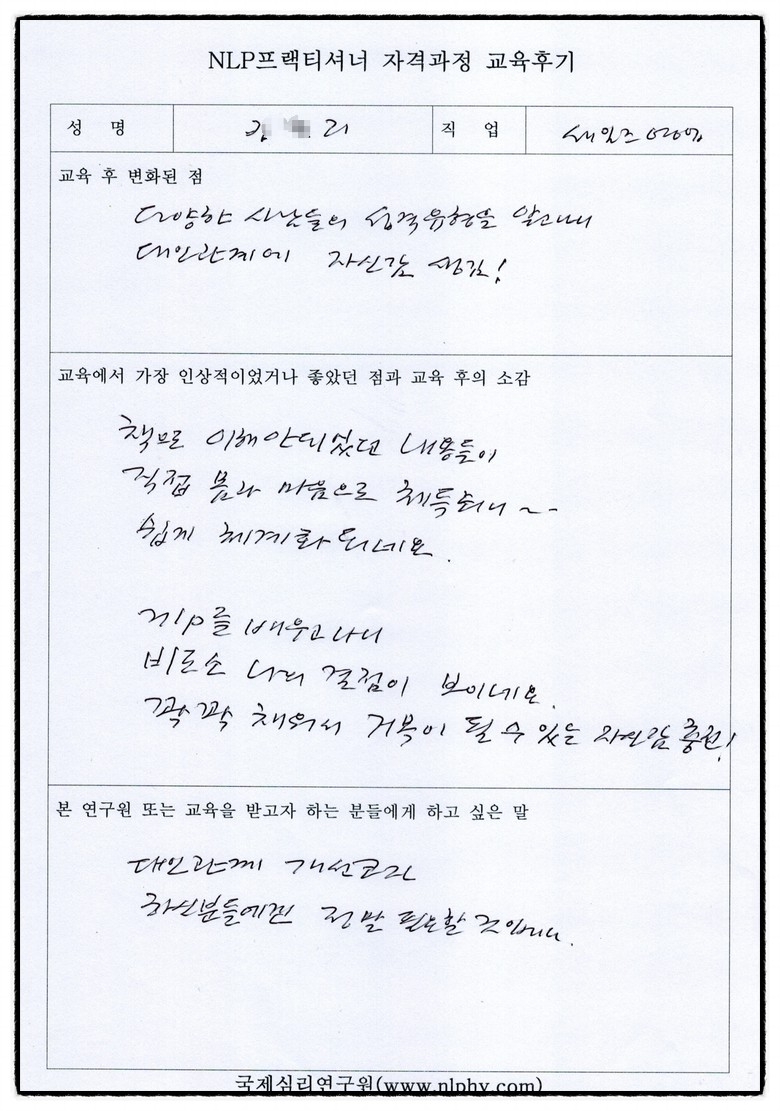 NLP프랙티셔너 자격과정 교육후기
성 명
리
직 업
세일즈
교육 후 변화된 점
다양한 사람들의 성격유형을 알고나니
대인관계에 자신감 생김!
교육에서 가장 인상적이었거나 좋았던 점과 교육 후의 소감
책으로 이해안되었던 내용들이
직접 몸과 마음으로 체득되니~~
쉽게 체계화되네요.
를 배우고나니
비로소 나의 결점이 보이네요.
꽉꽉 채워서 거북이 될 수 있는 자신감 충전!
본 연구원 또는 교육을 받고자 하는 분들에게 하고 싶은 말
대인관계 개선코자
하신분들에겐 정말 필요할 것입니다.
국제심리연구원(www.nlphy.com)